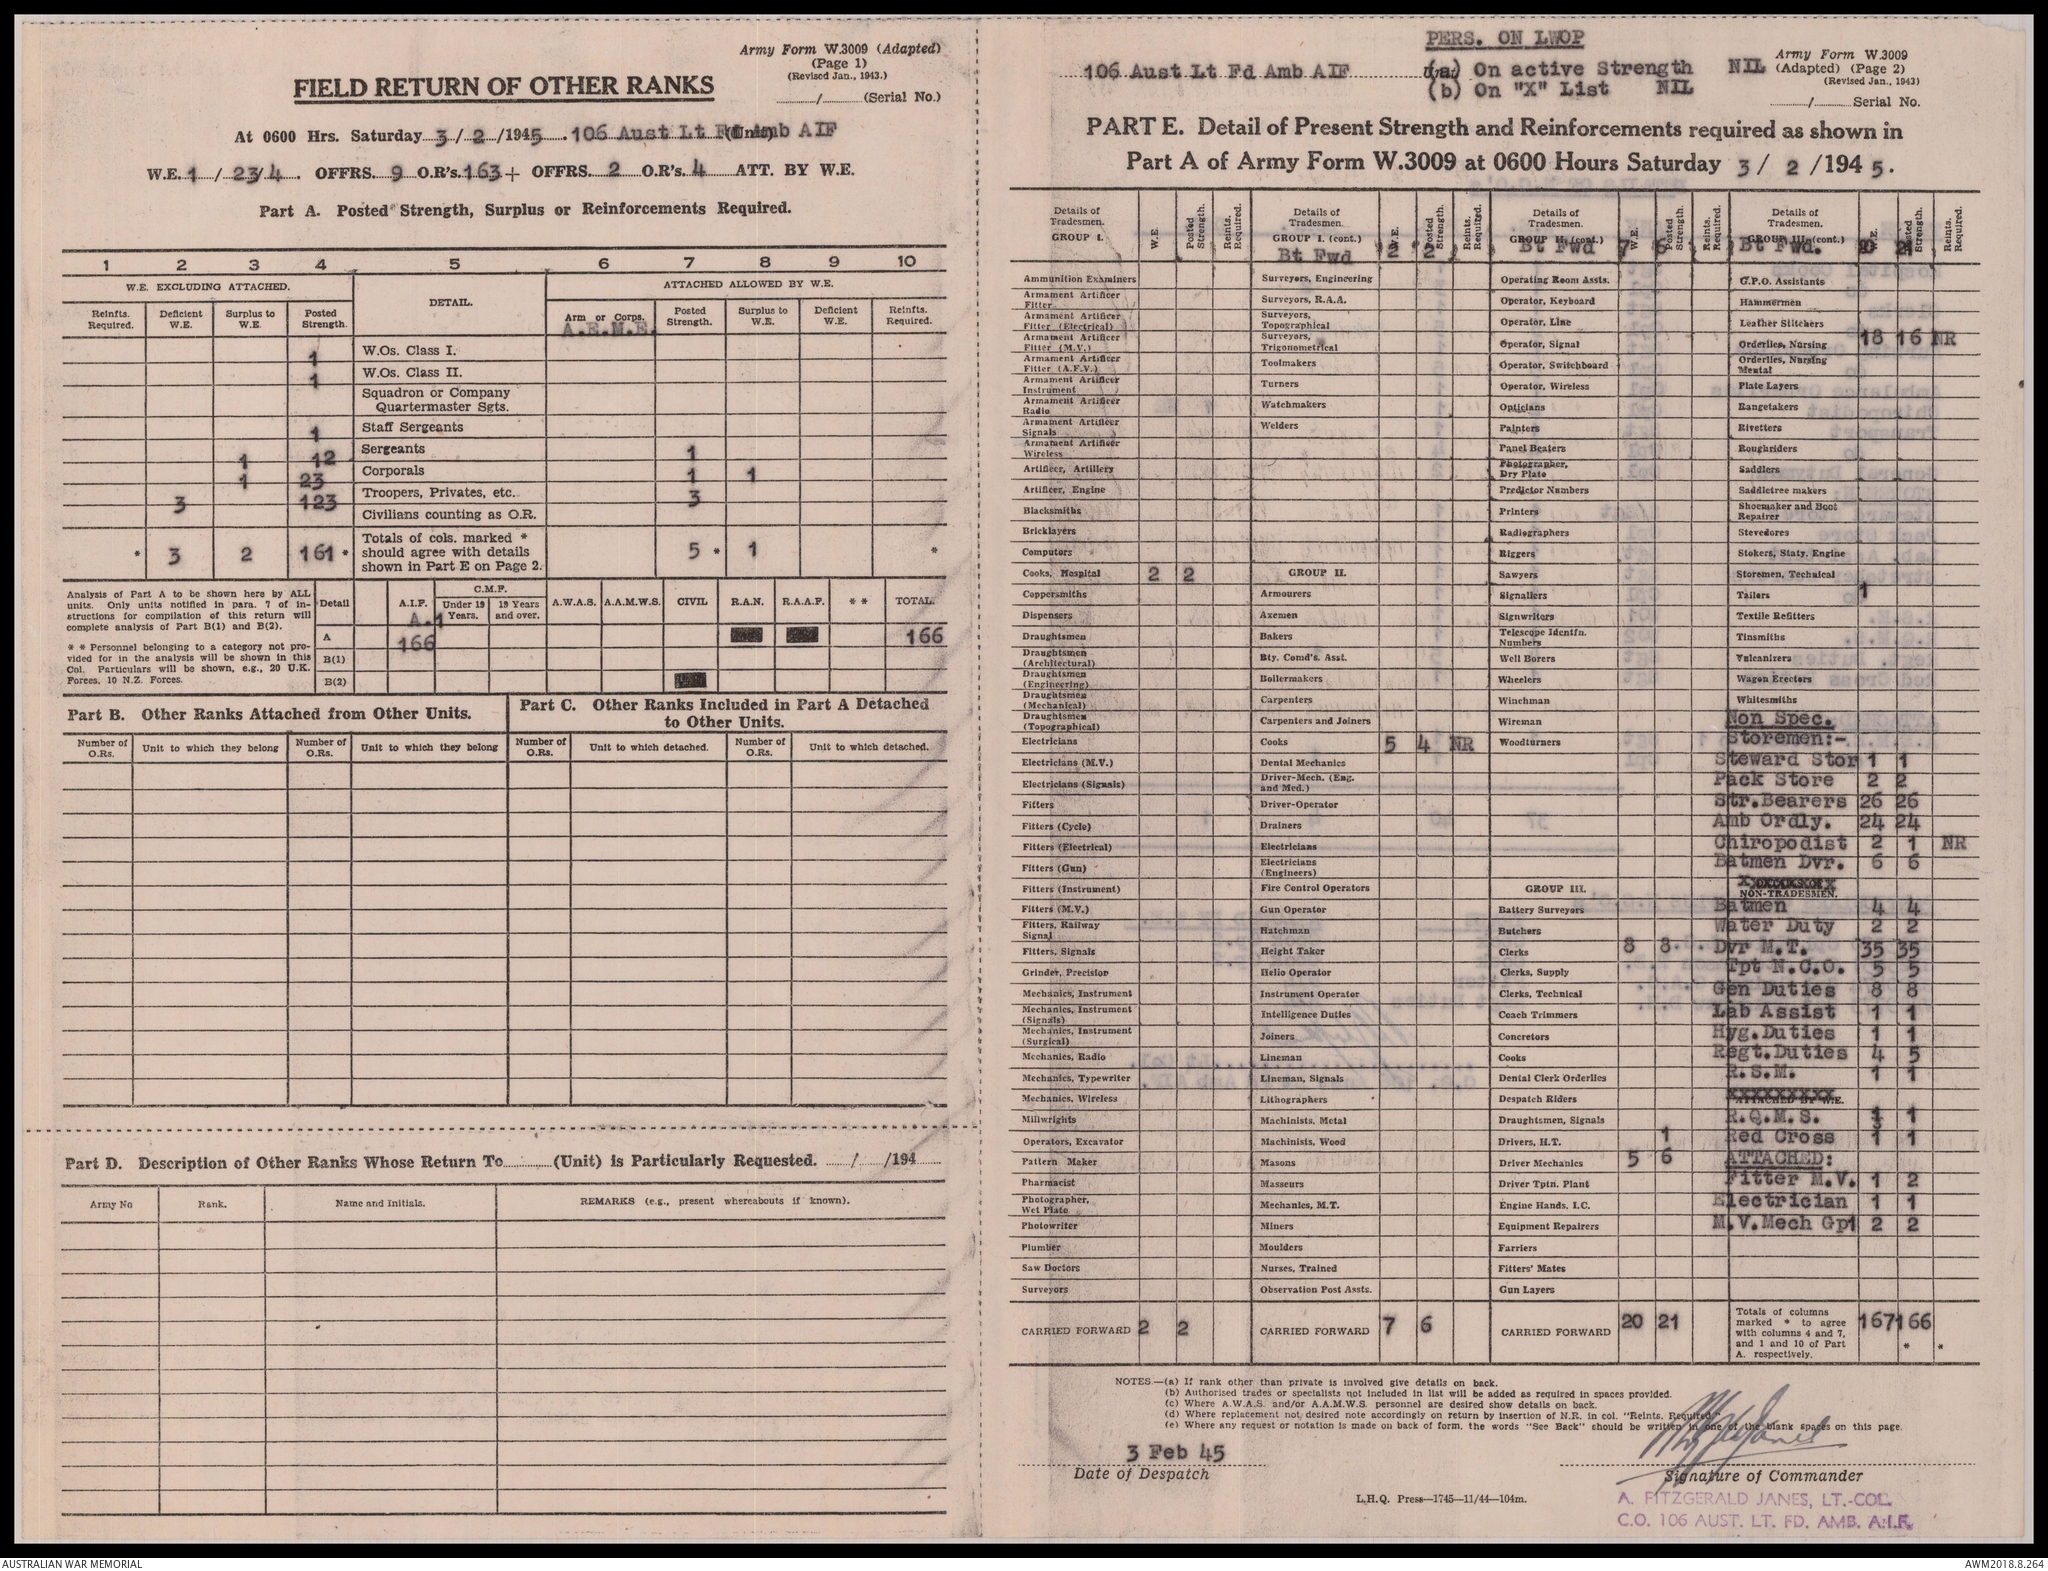 Army Form W.3009 (Adapted)
(Page 1)
(Revised Jan., 1943.)
FIELD RETURN OF OTHER RANKS
....../...... (Serial No.)
At 0600 Hrs. Saturday 3/2/1945. 106 Aust Lt Fd Amb AIF (Unit)
W.E. 1/23/4. OFFRS. 9 O.R's. 163+ OFFRS. 2 O.R's. 4 ATT. BY W.E.
Part A. Posted Strength, Surplus or Reinforcements Required.
1 2 3 4 5 6 7 8 9 10
W.E. EXCLUDING ATTACHED. DETAIL. ATTACHED ALLOWED BY W.E.
Reinfts. Required. Deficient W.E. Surplus to W.E. Posted Strength. Arm or Corps. Posted Strength. Surplus to W.E. Deficient W.E. Reinfts. Required.
A.E.M.E.
1 W.Os. Class I.
1 W.Os. Class II.
Squadron or Company
Quartermaster Sgts.
1 Staff Sergeants
1 12 Sergeants 1
1 23 Corporals 1 1
3 123 Troopers, Privates, etc. 3
Civilians counting as O.R.
* 3 2 161 * Totals of cols. marked * should agree with details shown in Part E on Page 2. 5 * 1 *
Analysis of Part A to be shown here by ALL
units. Only units notified in para. 7 of in-
structions for compilation of this return will
complete analysis of Part B(1) and B(2).
* * Personnel belonging to a category not pro-
vided for in the analysis will be shown in this
Col. Particulars will be shown, e.g., 20 U.K.
Forces, 10 N.Z. Forces.
Detail A.I.F. C.M.F. Under 19 Years. 19 Years and over. A.W.A.S. A.A.M.W.S. CIVIL R.A.N. R.A.A.F. * * TOTAL.
A.1
A 166 166
B(1)
B(2)
Part B. Other Ranks Attached from Other Units.
Part C. Other Ranks Included in Part A Detached
to Other Units.
Number of O.Rs. Unit to which they belong Number of O.Rs. Unit to which they belong Number of O.Rs. Unit to which detached. Number of O.Rs. Unit to which detached.
Part D. Description of Other Ranks Whose Return To......(Unit) is Particularly Requested. ....../....../194......
Army No Rank. Name and Initials. REMARKS (e.g., present whereabouts if known).
PERS. ON LWOP
106 Aust Lt Fd Amb AIF (a) On active Strength NIL
(b) On "X" List NIL
Army Form W.3009
(Adapted) (Page 2)
(Revised Jan., 1943)
....../...... Serial No.
PART E. Detail of Present Strength and Reinforcements required as shown in
Part A of Army Form W.3009 at 0600 Hours Saturday 3/ 2 /1945.
Details of Tradesmen. GROUP I. W.E. Posted Strength. Reints. Required.
Ammunition Examiners
Armament Artificer Fitter
Armament Artificer Fitter (Electrical)
Armament Artificer Fitter (M.V.)
Armament Artificer Fitter (A.F.V.)
Armament Artificer Instrument
Armament Artificer Radio
Armament Artificer Signals
Armament Artificer Wireless
Artificer, Artillery
Artificer, Engine
Blacksmiths
Bricklayers
Computors
Cooks, Hospital 2 2
Coppersmiths
Dispensers
Draughtsmen
Draughtsmen (Architectural)
Draughtsmen (Engineering)
Draughtsmen (Mechanical)
Draughtsmen (Topographical)
Electricians
Electricians (M.V.)
Electricians (Signals)
Fitters
Fitters (Cycle)
Fitters (Electrical)
Fitters (Gun)
Fitters (Instrument)
Fitters (M.V.)
Fitters, Railway Signal
Fitters, Signals
Grinder, Precision
Mechanics, Instrument
Mechanics, Instrument (Signals)
Mechanics, Instrument (Surgical)
Mechanics, Radio
Mechanics, Typewriter
Mechanics, Wireless
Millwrights
Operators, Excavator
Pattern Maker
Pharmacist
Photographer, Wet Plate
Photowriter
Plumber
Saw Doctors
Surveyors
CARRIED FORWARD 2 2
Details of Tradesmen. GROUP I. (cont.) W.E. Posted Strength. Reints. Required.
Bt Fwd 2 2
Surveyors, Engineering
Surveyors, R.A.A.
Surveyors, Topographical
Surveyors, Trigonometrical
Toolmakers
Turners
Watchmakers
Welders
GROUP II.
Armourers
Axemen
Bakers
Bty. Comd's. Asst.
Boilermakers
Carpenters
Carpenters and Joiners
Cooks 5 4 NR
Dental Mechanics
Driver-Mech. (Eng. and Med.)
Driver-Operator
Drainers
Electricians
Electricians (Engineers)
Fire Control Operators
Gun Operator
Hatchman
Height Taker
Helio Operator
Instrument Operator
Intelligence Duties
Joiners
Lineman
Lineman, Signals
Lithographers
Machinists, Metal
Machinists, Wood
Masons
Masseurs
Mechanics, M.T.
Miners
Moulders
Nurses, Trained
Observation Post Assts.
CARRIED FORWARD 7 6
Details of Tradesmen. GROUP II. (cont.) W.E. Posted Strength. Reints. Required.
Bt Fwd 7 6
Operating Room Assts.
Operator, Keyboard
Operator, Line
Operator, Signal
Operator, Switchboard
Operator, Wireless
Opticians
Painters
Panel Beaters
Photographer, Dry Plate
Predictor Numbers
Printers
Radiographers
Riggers
Sawyers
Signallers
Signwriters
Telescope Identfn. Numbers
Well Borers
Wheelers
Winchman
Wireman
Woodturners
GROUP III.
Battery Surveyors
Butchers
Clerks 8 8
Clerks, Supply
Clerks, Technical
Coach Trimmers
Concretors
Cooks
Dental Clerk Orderlies
Despatch Riders
Draughtsmen, Signals
Drivers, H.T. 1
Driver Mechanics 5 6
Driver Tptn. Plant
Engine Hands, I.C.
Equipment Repairers
Farriers
Fitters' Mates
Gun Layers
CARRIED FORWARD 20 21
Details of Tradesmen. GROUP III. (cont.) W.E. Posted Strength. Reints. Required.
Bt Fwd. 20 21
G.P.O. Assistants
Hammermen
Leather Stitchers
Orderlies, Nursing 18 16 NR
Orderlies, Nursing Mental
Plate Layers
Rangetakers
Rivetters
Roughriders
Saddlers
Saddletree makers
Shoemaker and Boot Repairer
Stevedores
Stokers, Staty. Engine
Storemen, Technical
Tailors 1
Textile Refitters
Tinsmiths
Vulcanizers
Wagon Erectors
Whitesmiths
Non Spec.
Storemen:-
Steward Stor 1 1
Pack Store 2 2
Str.Bearers 26 26
Amb Ordly. 24 24
Chiropodist 2 1 NR
Batmen Dvr. 6 6
NON-TRADESMEN.
Batmen 4 4
Water Duty 2 2
Dvr M.T. 35 35
Tpt N.C.O. 5 5
Gen Duties 8 8
Lab Assist 1 1
Hyg.Duties 1 1
Regt.Duties 4 5
R.S.M. 1 1
XXXXXXXXX
ATTACHED BY W.E.
R.Q.M.S. 1 1
Red Cross 1 1
ATTACHED:
Fitter M.V. 1 2
Electrician 1 1
M.V.Mech Gp1 2 2
Totals of columns marked * to agree with columns 4 and 7, and 1 and 10 of Part A. respectively. 167 166 * *
NOTES.—(a) If rank other than private is involved give details on back.
(b) Authorised trades or specialists not included in list will be added as required in spaces provided.
(c) Where A.W.A.S. and/or A.A.M.W.S. personnel are desired show details on back.
(d) Where replacement not desired note accordingly on return by insertion of N.R. in col. "Reints. Required."
(e) Where any request or notation is made on back of form, the words "See Back" should be written in one of the blank spaces on this page.
3 Feb 45
Date of Despatch
Signature of Commander
L.H.Q. Press—1745—11/44—104m.
A. FITZGERALD JANES, LT.-COL.
C.O. 106 AUST. LT. FD. AMB. A.I.F.
AUSTRALIAN WAR MEMORIAL
AWM2018.8.264